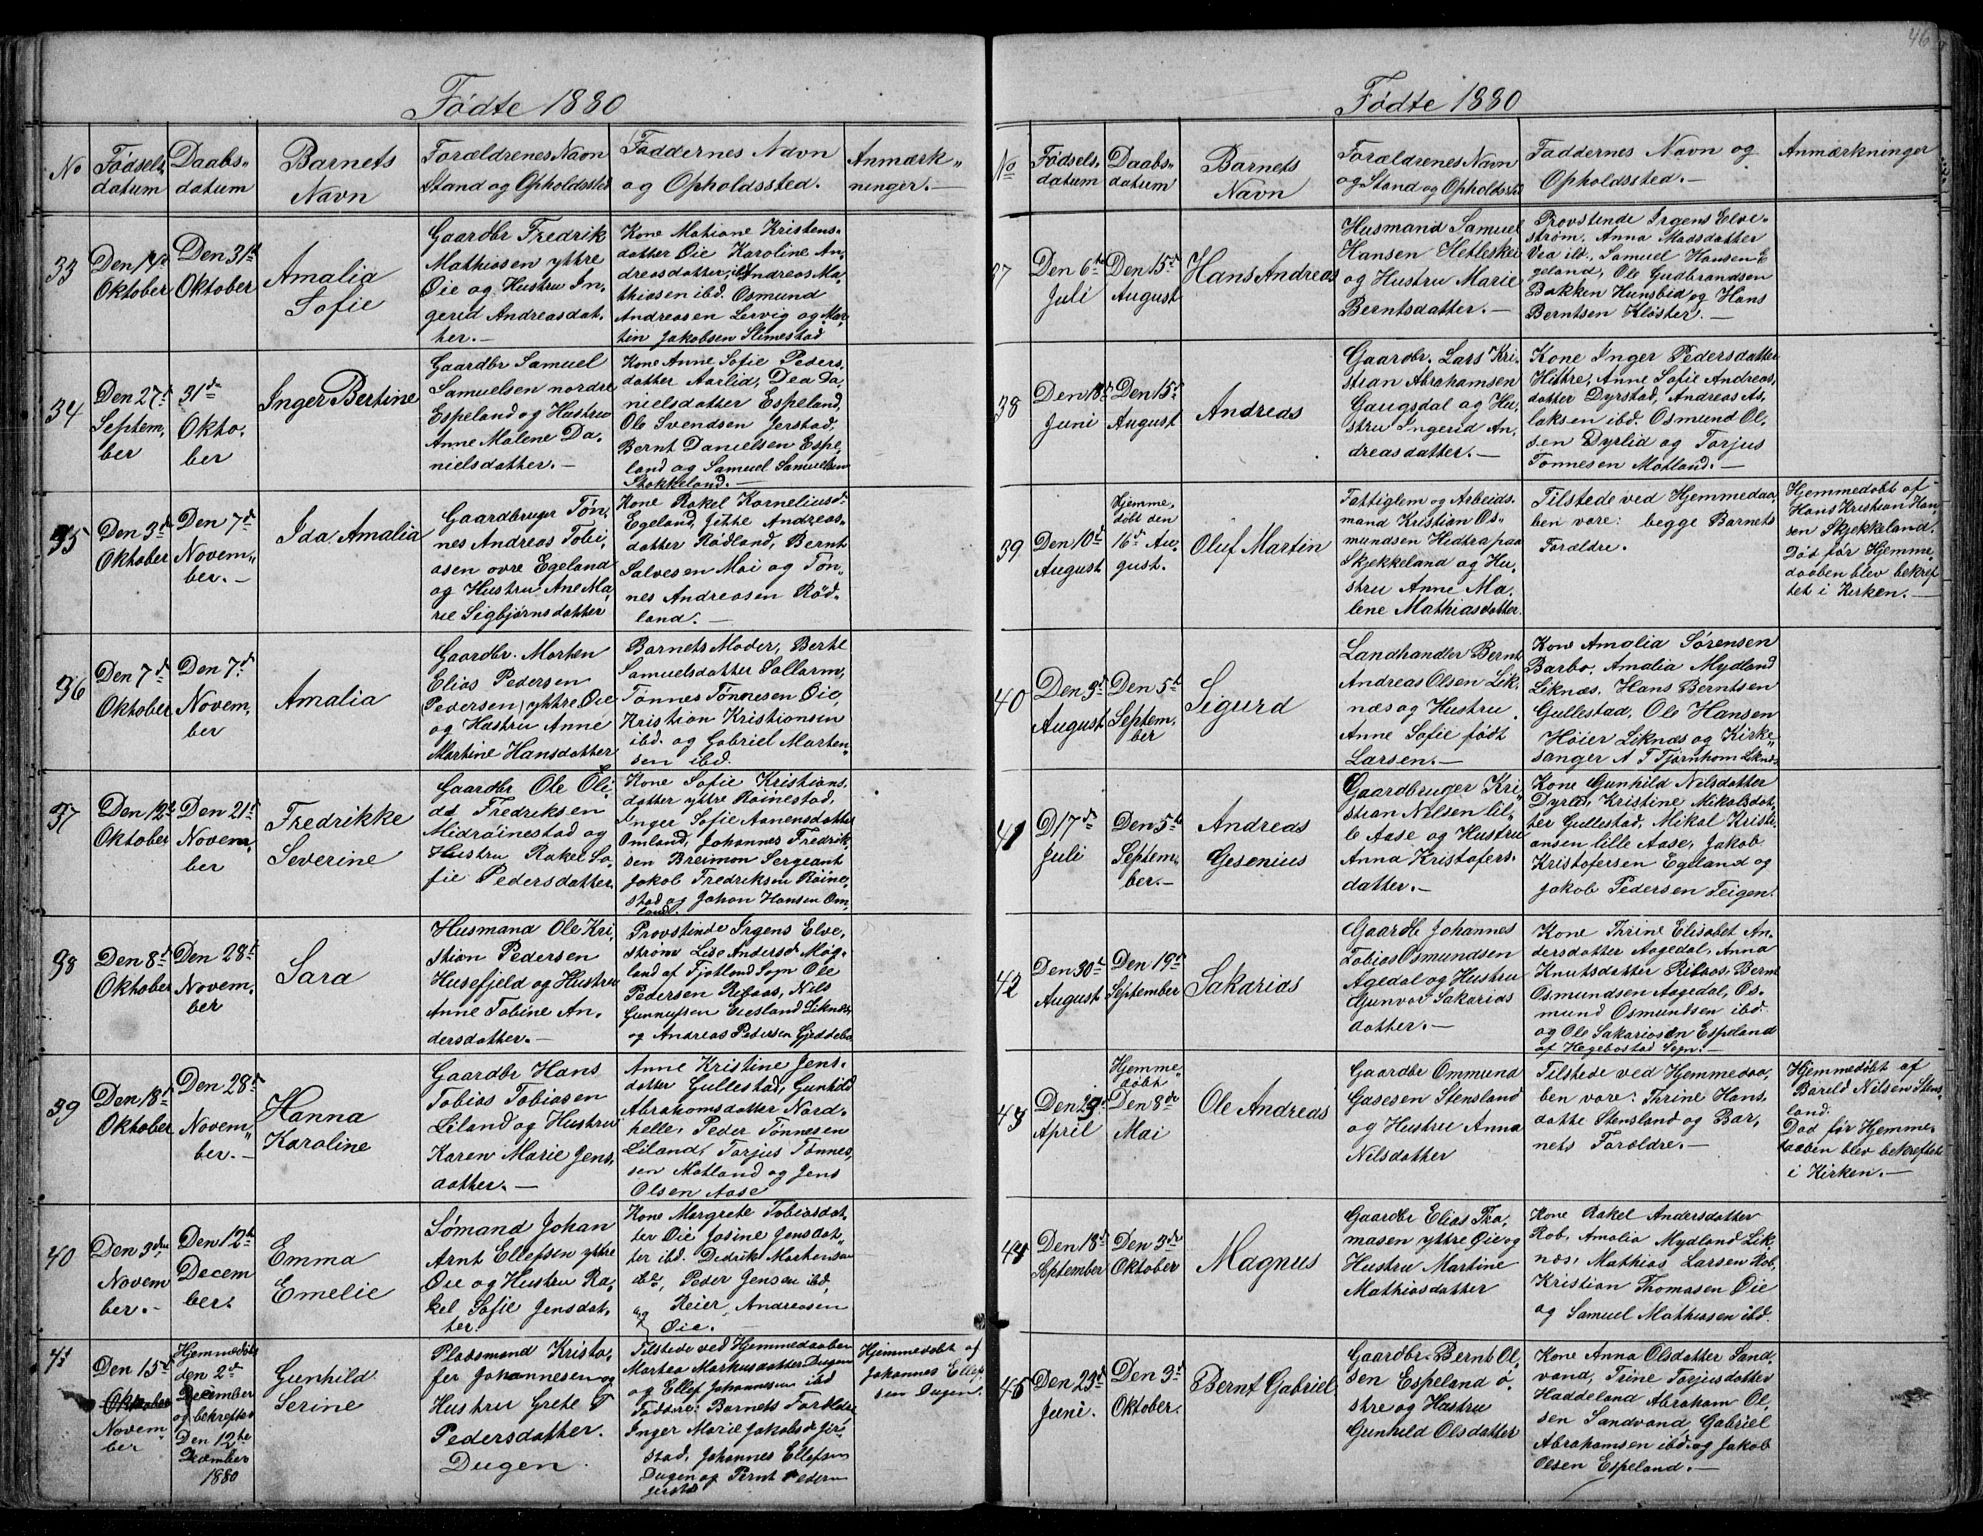 Fødte 1880
No
Fødsels datum
Daabs- datum
Barnets Navn
Forældrenes Navn Stand og Opholdssted
Faddernes Navn og Opholdssted.
Anmærk- ninger.
33
Den 14d
Oktober
Den 31te
Oktober
Amalia
Sofie
Gaardbr Fredrik
Mathiasen yttre
Øie og Hustru In-
gerid Andreasdat-
ter.
Kone Matiane Kristens-
datter Øie Karoline An-
dreasdatter ibd Andreas Ma-
thiasen ibd. Osmund
Andreasen Lervig og Mar-
tin Jakobsen Slimestad
34
Den 27d
Septem-
ber
31de
Okto-
ber
Inger Bertine
Gaardbr Samuel
Samuelsen nordre
Espeland og Hustru
Anne Malene Da-
nielsdatter.
Kone Anne Sofie Peders-
datter Aarlid, Dea Da-
nielsdatter Espeland,
Ole Svendsen Jerstad,
Bernt Danielsen Espe-
land og Samuel Samuelsen
Stokkeland.
35
Den 3d
Oktober
Den 7d
Novem-
ber.
Ida Amalia
Gaardbruger Tøn-
nes Andreas Tobi-
asen ovre Egeland
og Hustru Ane Ma-
rie Sigbjørnsdatter
Kone Rakel Korneliusd.
Egeland, Jitte Andreas-
datter Rødland, Bernt
Salvesen Moi og Tøn-
nes Andreasen Rød-
land.
36
Den 7d
Oktober
Den 7d
Novem-
ber
Amalia
Gaardbr. Morten
Elias Pedersen
(Pedersen) yttre Øie
og Hustru Anne
Martine Hansdatter
Barnets Moder, Berte
Samuelsdatter Sollarm,
Tønnes Tønnesen Øie,
Kristian Kristiansen
ibd. og Gabriel Morten-
sen ibd.
37
Den 12d
Oktober
Den 21d
Novem-
ber
Fredrikke
Severine
Gaardbr Ole Oli-
as Fredriksen
Midrøinestad og
Hustru Rakel So-
fie Pedersdatter.
Kone Sofie Kristians
datter yttre Røinestad,
Inger Sofie Aanensdatter
Omland, Johannes Fredrik-
sen Breimon Sergeant
Jakob Fredriksen Røine-
stad og Johan Hansen Om-
land.
38
Den 8d
Oktober
Den 28d
Novem-
ber
Sara
Husmand Ole Kri-
stian Pedersen
Husefjeld og Hustru
Anne Tobine An-
dersdatter.
Provstinde Irgens Elve-
strøm Lise Andersd Møg-
land af Fjotland Sogn Ole
Pedersen Ribaas, Nils
Gunnufsen Eiesland Liknes
og Andreas Pedersen Gjeddebo
39
Den 18d
Oktober
Den 28d
Novem-
ber.
Hanna
Karoline
Gaardbr Hans
Tobias Tobiasen
Liland og Hustru
Karen Marie Jens-
datter.
Anne Kristine Jens-
datter Gullestad, Gunhild
Abrahamsdatter Nord-
helle, Peder Tønnesen
Liland, Torjus Tønnes-
sen Matland og Jens
Olsen Aase
40
Den 3den
Novem
ber.
Den 12te
Decem
ber.
Emma
Emelie
Sømand Johan
Arnt Ellefsen yttre
Øie og Hustru Ra-
kel Sofie Jensdat-
ter.
Kone Margrete Tobiasdat-
ter Øie Josine Jensdat-
ter ibd. Didrik Mathensen
ibd, Peder Jensen ibd,
og Reier Andreasen
Øie.
41
Den 15d
Oktober
Novem
ber
Hjemmedøbt
den 2d
December
og bekræftet
Den 12te
December
1880
Gunhild
Serine
Pladsmand Kristo-
fer Johannesen og
Hustru Grete T
Pedersdatter.
Dugen
Tilstede ved Hjemmedaaben
Martea Markusdatter Dugen
og Ellef Johannesen ibd
Faddere: Barnets Forældre
Inger Marie Jakobsd Jer-
stad, Johannes Ellefsen
Dugen og Bernt Pedersen
Jerstad
Hjemmedøbt af
Johannes Ellef
sen Dugen
46
Fødte 1880
No
Fødsels- datum
Daabs- datum
Barnets Navn
Forældrenes Navn og Stand og Opholdssted
Faddernes Navn og Opholdssted.
Anmærkninger
37
Den 6te
Juli
Den 15d
August
Hans Andreas
Husmand Samuel
Hansen Hetleskei
og Hustru Marie
Berntsdatter.
Provstinde Irgens Elve-
strøm, Anna Madsdatter
Vea ibd, Samuel Hansen E
geland, Ole Gudbrandsen
Bakken Hunsbid og Hans
Berntsen Kloster.
38
Den 18d
Juni
Den 15d
August
Andreas
Gaardbr. Lars Kri-
stian Abrahamsen
Gaugsdal og Hu-
stru Ingerid An-
dreasdatter.
Kone Inger Pedersdatter
Hittre, Anne Sofie Andreas-
datter Dyrstad, Andreas As-
laksen ibd. Osmund Ol-
sen Dyrlid og Torjus
Tønnesen Matland.
39
Den 10d
August
Hjemme-
døbt den
16d Au-
gust.
Oluf Martin
Fattiglem og Arbeids-
mand Kristian Os-
mundsen Hedtra paa
Skjekkeland og Hu-
stru Anne Ma-
lene Mathiasdatter
Tilstede ved Hjemmedaa-
ben vare: begge Barnets
Forældre.
Hjemmedøbt af
Hans Kristian Han-
sen Skjekkeland.
Død før Hjemme-
daaben blev bekref
tet i Kirken.
40
Den 3d
August
Den 5d
Septem-
ber
Sigurd
Landhandler Bernt
Andreas Olsen Lik-
næs og Hustru
Anne Sofie født
Larsen.
Kone Amalia Sørensen
Barbo, Amalia Mydland
Liknæs, Hans Berntsen
Gullestad, Ole Hansen
Høier Liknæs og Kirke-
sanger A T Tjørnhom Liknæs
41
D 17de
Juli
Den 5te
Septem-
ber.
Andreas
Gesenius
Gaardbruger Kri-
stian Nilsen lil-
le Aase og Hustru
Anna Kristofers-
datter.
Kone Gunhild Nilsdatter
Dyrlid, Kristine Mikalsdat-
ter Gullestad, Mikal Kristi-
ansen lille Aase, Jakob
Kristofersen Egeland og
Jakob Pedersen Teigen.
42
Den 30d
August
Den 19d
September
Sakarias
Gaardb Johannes
Tobias Osmundsen
Agedal og Hustru
Gunvor Sakarias
datter.
Kone Thrine Elisabet An-
dersdatter Aagedal, Anna
Knutsdatter Ribaas, Bernt
Osmundsen Aagedal, Os-
mund Osmundsen ibd.
og Ole Sakariasen Espeland
af Hegebostad Sogn.
43
Den 29d
April
Hjemme-
døbt
Den 8de
Mai
Ole Andreas
Gaardbr Ommund
Gasesen Stensland
og Hustru Anna
Nilsdatter
Tilstede ved Hjemmedaa-
ben vare: Thrine Hans-
datte Stensland og Bar-
nets Forældre.
Hjemmedøbt af
Bareld Nilsen Stens-
land.
Død før Hjemme-
daaben blev bekreftet
i Kirken.
44
Den 18d
September
Den 3de
Oktober
Magnus
Gaardbr Elias Tho-
masen yttre Øie og
Hustru Martine
Mathiasdatter
Kone Rakel Andersdatter
Rob, Amalia Mydland Lik-
næs, Mathias Larsen Rob,
Kristian Thomasen Øie
og Samuel Mathiasen ibd.
45
Den 23d
Juni.
Den 3d
Oktober.
Bernt Gabriel
Gaardbr. Bernt Ol-
sen Espeland ø-
stre og Hustru
Gunhild Olsdatter
Kone Anna Olsdatter Sand-
vand, Trine Torjusdatter
Haddeland Abraham Ol-
sen Sandvand, Gabriel
Abrahamsen ibd. og Jakob
Olsen Espeland.